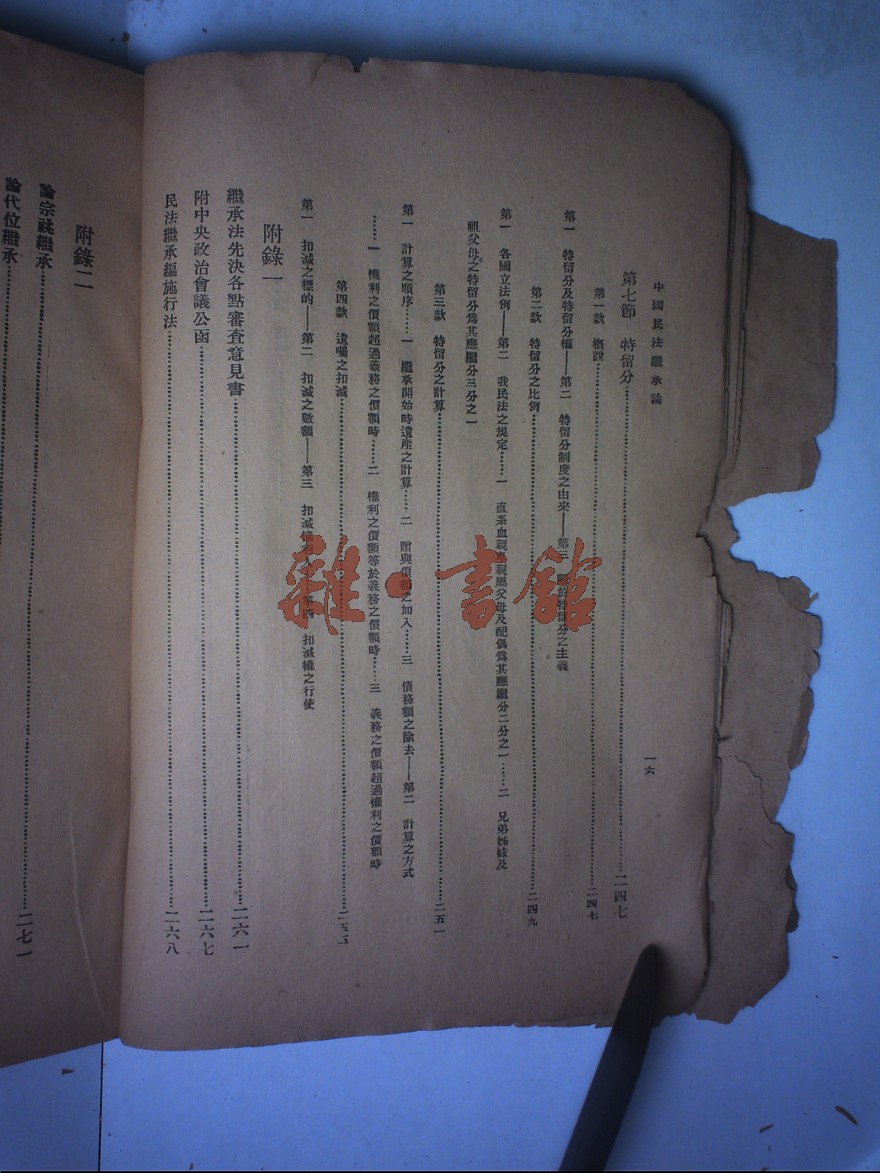 中國民法繼承論
一六
第七節　特留分……二四七
第一款　槪說……二四七
第一　特留分及特留分權——第二　特留分制度之由來——第三　特留分之主義
第二款　特留分之比例……二四九
第一　各國立法例——第二　我民法之規定……一　直系血親親屬父母及配偶爲其應繼分二分之一……二　兄弟姊妹及
祖父母之特留分爲其應繼分三分之一
第三款　特留分之計算……二五一
第一　計算之順序……一　繼承開始時遺產之計算……二　贈與價額之加入……三　債務額之除去——第二　計算之方式
……一　權利之價額超過義務之價額時……二　權利之價額等於義務之價額時……三　義務之價額超過權利之價額時
第四款　遺囑之扣減……二五五
第一　扣減之標的——第二　扣減之數額——第三　扣減　第四　扣減權之行使
附錄一
繼承法先決各點審査意見書……二六一
附中央政治會議公函……二六七
民法繼承編施行法……二六八
附錄二
論宗祧繼承……二七一
論代位繼承……
雜·書館